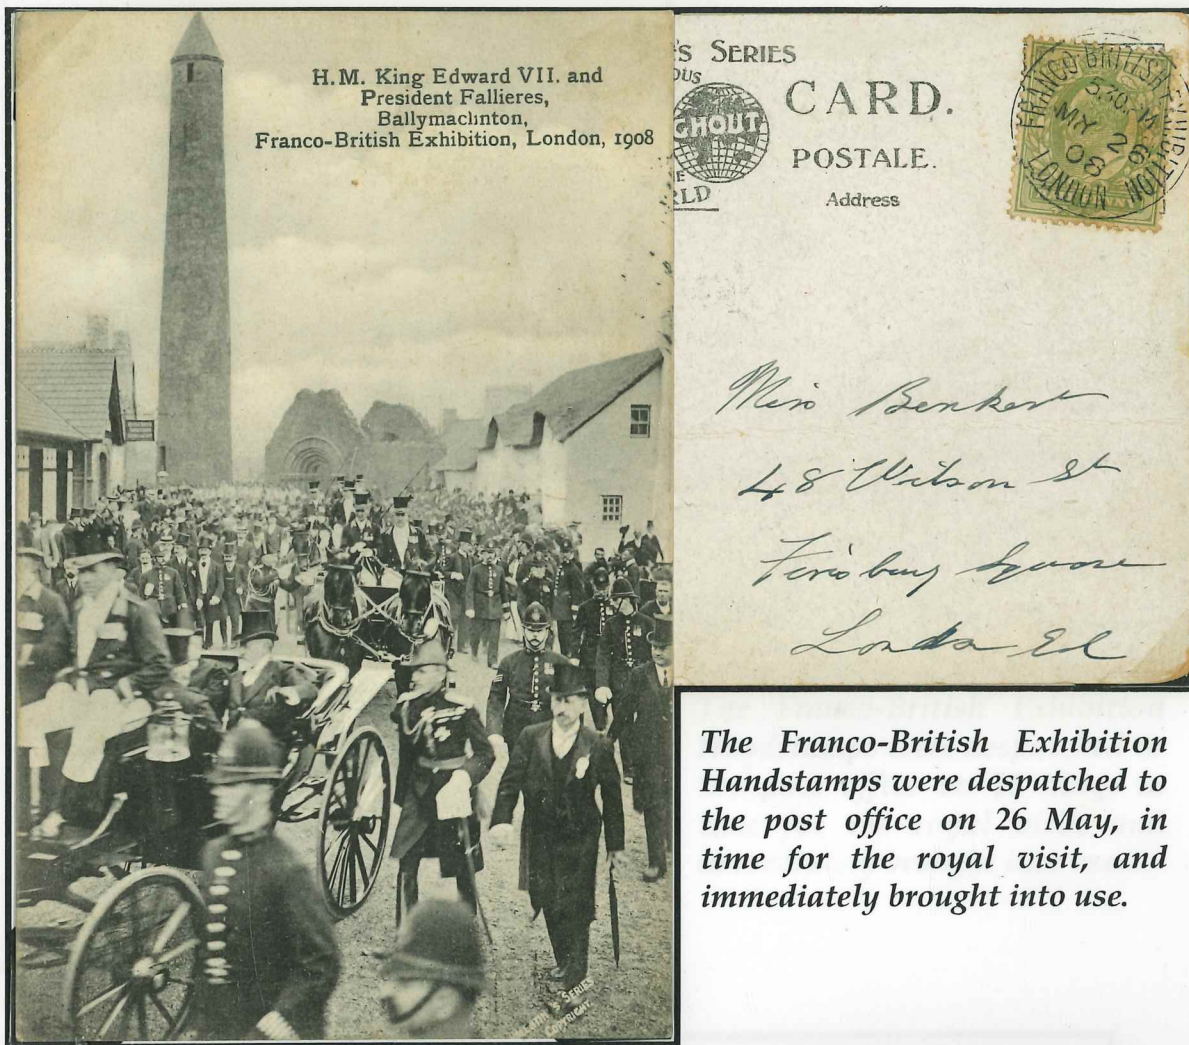 H.M. King Edward VII. and
President Fallieres,
Ballymaclinton,
Franco-British Exhibition, London, 1908
'S SERIES
OUS
GHOUT
E
RLD
CARD.
POSTALE.
Address
FRANCO-BRITISH EXHIBITION
5.30
MY 26
08
LONDON
Miss Benkert
48 Wilson St
Finsbury Square
London E.C
'S SERIES
COPYRIGHT.
The Franco-British Exhibition
Handstamps were despatched to
the post office on 26 May, in
time for the royal visit, and
immediately brought into use.